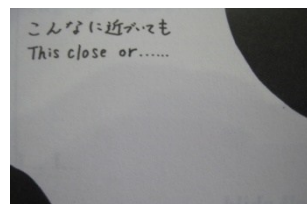 こんなに近づいても
This close or......